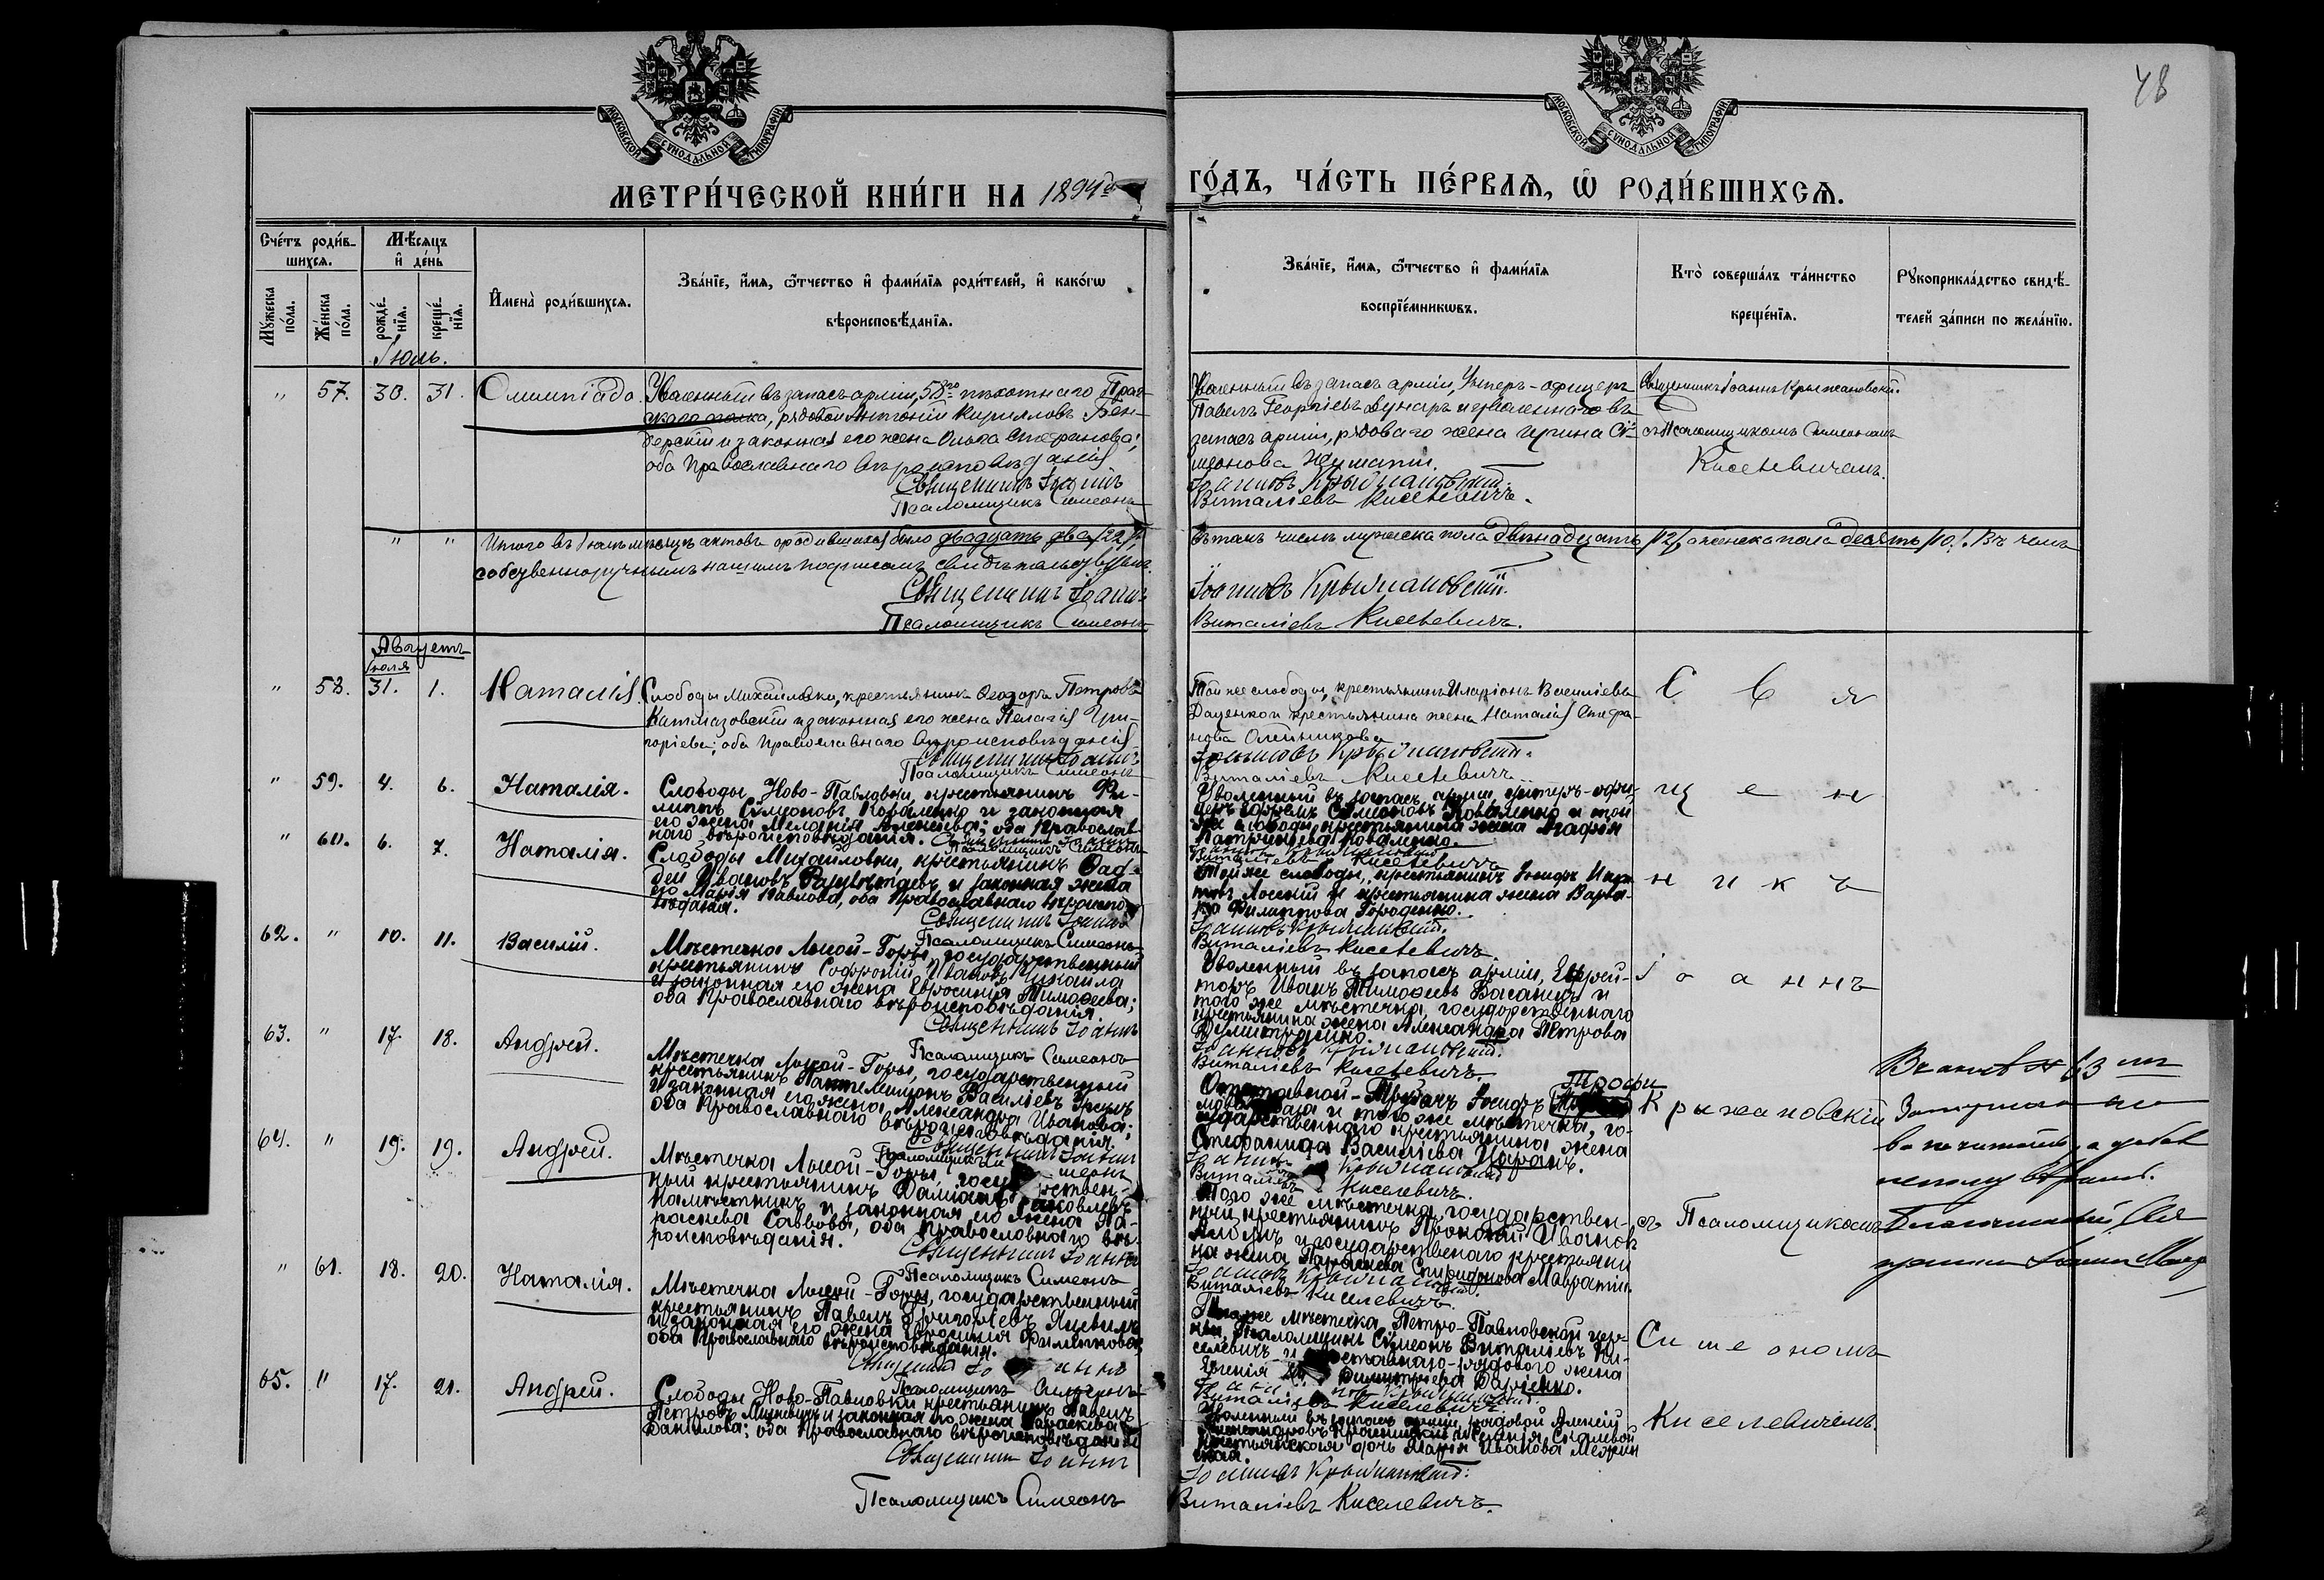 48
МОСКОВСКОЙ СУНОДАЛЬНОЙ ТИПОГРАФІИ
МОСКОВСКОЙ СУНОДАЛЬНОЙ ТИПОГРАФІИ
МЕТРИ́ЧЕСКОЙ КНИ́ГИ НА 1894й ГО́ДЪ, ЧА́СТЬ ПЕ́РВАЯ, Ѽ РОДИ́ВШИХСЯ.
Сче́тъ роди́в-
шихся.
Мѣ́сяцъ
и҆ де́нь
Мꙋ́жеска по́ла.
Же́нска по́ла.
рожде́нїя.
креще́нїя.
И҆мена̀ роди́вшихся.
Зва́нїе, и҆́мя, ѻ҆́тчество и҆ фами́лїя роди́телей, и҆ како́гѡ
вѣроисповѣ́данїя.
Зва́нїе, и҆́мя, ѻ҆́тчество и҆ фами́лїя
воспрїе́мникѡвъ.
Кто̀ соверша́лъ та́инство
креще́нїя.
Рꙋкоприкла́дство свидѣ́-
телей за́писи по жела́нїю.
Іюль.
" 57. 30. 31. Олимпіада.
Уволенный въ запасъ арміи, 58го пѣхотнаго Праг-
скаго полка, рядовой Антоній Кирилловъ Бен-
дерскій и законная его жена Ольга Стефанова;
оба Православнаго вѣроисповѣданія
Священникъ Іоаннъ
Псаломщикъ Симеонъ
Уволенный въ запасъ арміи, Унтеръ-офицеръ
Павелъ Георгіевъ Дунаръ и уволеннаго въ
запасъ арміи, рядоваго жена Ирина Си-
меонова
Іоанновъ Крыжановскій.
Виталіевъ Киселевичъ.
Священникъ Іоаннъ Крыжановскій
съ Псаломщикомъ Симеономъ
Киселевичемъ.
" " Итого въ Іюлѣ мѣсяцѣ актовъ о родившихся было двадцать два /22/,
въ томъ числѣ мужеска пола двѣнадцать /12/, а женска пола десять /10/. Въ чемъ
собственноручнымъ нашимъ подписомъ свидѣтельствуемъ.
Священникъ Іоаннъ
Іоанновъ Крыжановскій.
Псаломщикъ Симеонъ
Виталіевъ Киселевичъ.
Августъ
Іюля
" 58. 31. 1. Наталія.
Слободы Михайловки, крестьянинъ Ѳеодоръ Петровъ
Катмазовскій и законная его жена Пелагія Гри-
горіева; оба Православнаго вѣроисповѣданія
Священникъ Іоаннъ
Псаломщикъ Симеонъ
Той же слободы, крестьянинъ Иларіонъ Василіевъ
Даценко и крестьянина жена Наталія Стефа-
нова Олейникова
Іоанновъ Крыжановскій.
Виталіевъ Киселевичъ.
С в я
" 59. 4. 6. Наталія.
Слободы Ново-Павловки, крестьянинъ Фи-
липпъ Симеоновъ Коваленко и законная
его жена Меланія Алексѣева; оба Православ-
наго вѣроисповѣданія. Священникъ Іоаннъ
Псаломщикъ Симеонъ
Уволенный въ запасъ арміи, унтеръ-офи-
церъ Ефремъ Симеоновъ Коваленко и той
же слободы, крестьянина жена Агафія
Патрикіева Коваленко.
Іоанновъ Крыжановскій
Виталіевъ Киселевичъ
щ е н
" 60. 6. 7. Наталія.
Слободы Михайловки, крестьянинъ Ѳад-
дей Ивановъ и законная жена
его Марія Павлова, оба Православнаго вѣроиспо-
вѣданія.
Священникъ Іоаннъ
Псаломщикъ Симеонъ
Той же слободы, крестьянинъ Іосифъ
Лоскій и крестьянина жена Варва-
ра Филиппова Городенко.
Іоанновъ Крыжановскій.
Виталіевъ Киселевичъ.
н и к ъ
62. " 10. 11. Василій.
Мѣстечка Лысой-Горы, государственный
крестьянинъ Софроній Ивановъ
и законная его жена Евросинія Тимоѳеева;
оба Православнаго вѣроисповѣданія.
Священникъ Іоаннъ
Псаломщикъ Симеонъ
Уволенный въ запасъ арміи, Ефрей-
торъ Иванъ Тимоѳеевъ Басанецъ и
того же мѣстечка, государственнаго
крестьянина жена Александра Петрова
Іоанновъ Крыжановскій.
Виталіевъ Киселевичъ.
І о а н н ъ
63. " 17. 18. Андрей.
Мѣстечка Лысой-Горы, государственный
крестьянинъ Пантелеимонъ Василіевъ
и законная его жена Александра Иванова;
оба Православнаго вѣроисповѣданія.
Священникъ Іоаннъ
Псаломщикъ Симеонъ
Трофи
Отставной Іосифъ
мовъ и того же мѣстечка, го-
сударственнаго крестьянина жена
Стефанида Василіева Царанъ.
Іоанновъ Крыжановскій
Виталіевъ Киселевичъ.
Крыжановскій
Въ актѣ № 63 мъ
64. " 19. 19. Андрей.
Мѣстечка Лысой-Горы, государствен-
ный крестьянинъ Даміанъ Яковлевъ
Намѣстникъ и законная его жена Па-
раскева Саввова, оба Православнаго вѣ-
роисповѣданія.
Священникъ Іоаннъ
Псаломщикъ Симеонъ
Того же мѣстечка, государствен-
ный крестьянинъ Прокопій Ивановъ
и государственаго крестьяни
на жена Параскева Спиридонова Мавратій.
Іоанновъ Крыжановскій.
Виталіевъ Киселевичъ.
съ Псаломщикомъ
" 61. 18. 20. Наталія.
Мѣстечка Лысой-Горы, государственный
крестьянинъ Павелъ Григоріевъ
и законная его жена Евросинія Филиппова;
оба Православнаго вѣроисповѣданія.
Священникъ Іоаннъ
Псаломщикъ Симеонъ
Того же мѣстечка, Петро-Павловской церк-
ви, Псаломщикъ Симеонъ Виталіевъ Ки-
селевичъ и отставнаго-рядового жена
Евгенія Димитріева
Іоанновъ Крыжановскій.
Виталіевъ Киселевичъ.
Симеономъ
65. " 17. 21. Андрей.
Слободы Ново-Павловки крестьянинъ Павелъ
Петровъ и законная его жена Параскева
Данилова; оба Православнаго вѣроисповѣданія
Священникъ Іоаннъ
Псаломщикъ Симеонъ
Уволенный въ запасъ арміи, рядовой Алексій
крестьянская дочь Марія Иванова
Іоанновъ Крыжановскій.
Виталіевъ Киселевичъ.
Киселевичемъ.